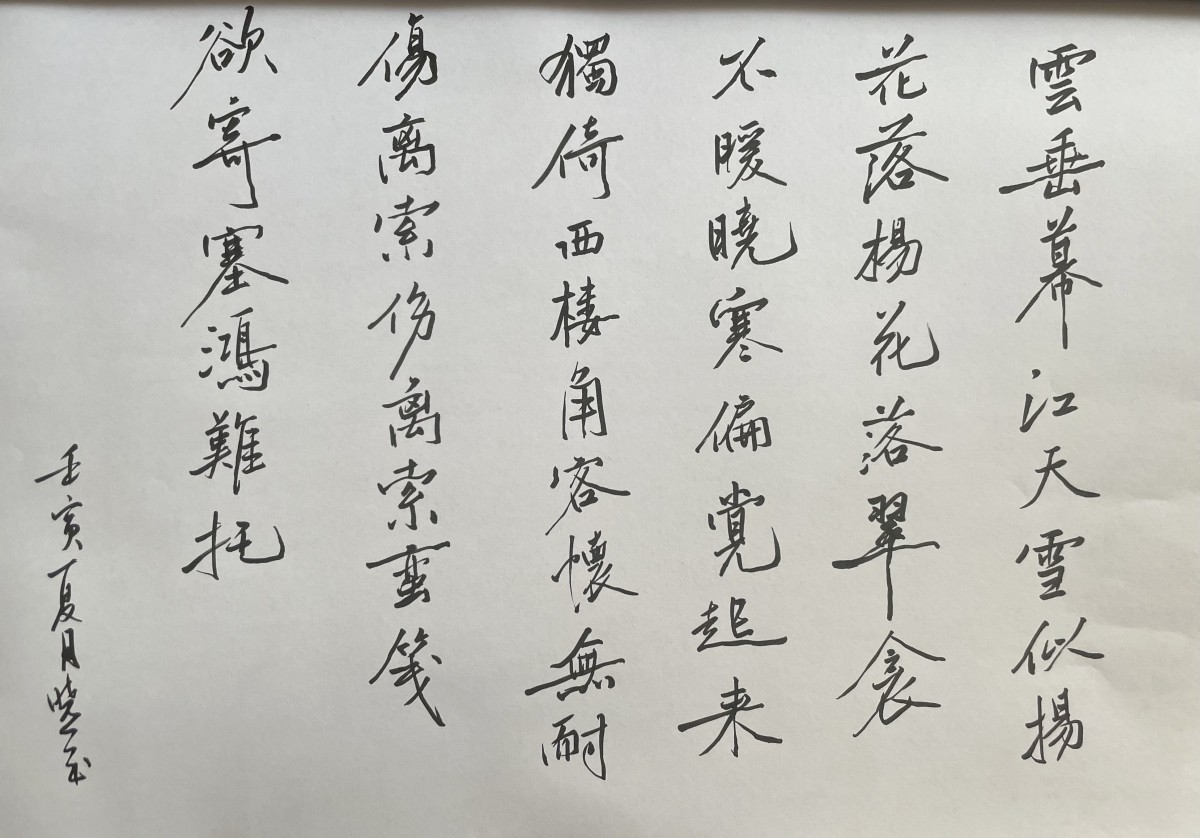 雲垂幕江天雪似揚
花落楊花落翠衾
不暖曉寒偏覚起来
獨倚西楼角客懷無耐
傷离索伤离索蛮笺
欲寄塞鴻難托
壬寅夏月晓